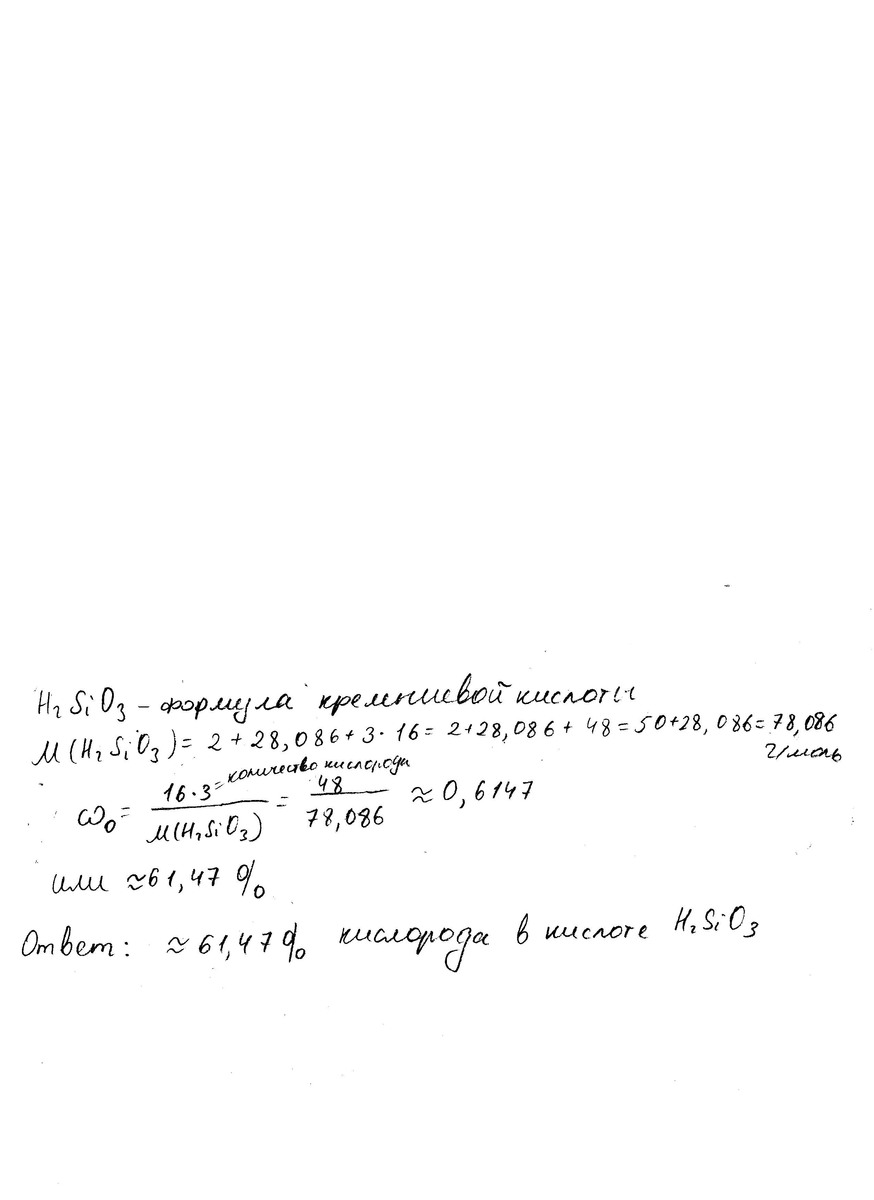 H₂SiO₃ – формула кремниевой кислоты
M(H₂SiO₃) = 2 + 28,086 + 3 · 16 = 2 + 28,086 + 48 = 50 + 28,086 = 78,086
г/моль
количество кислорода
ω₀ = 16·3 / M(H₂SiO₃) = 48 / 78,086 ≈ 0,6147
или ≈ 61,47 %
Ответ: ≈ 61,47% кислорода в кислоте H₂SiO₃